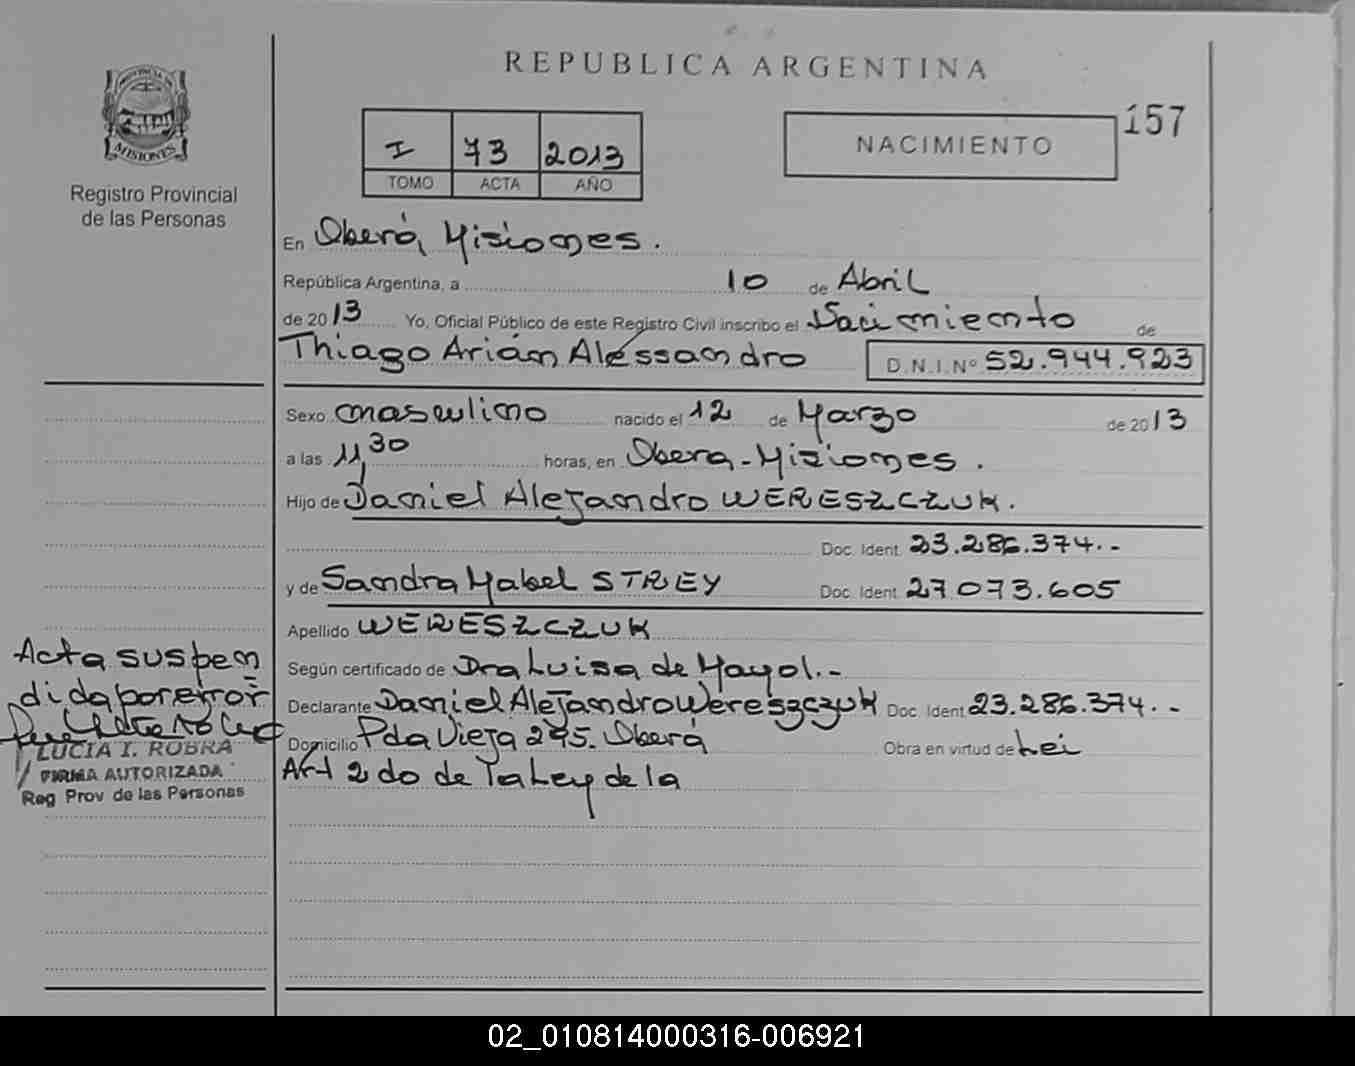 REPUBLICA ARGENTINA
PROVINCIA DE MISIONES
Registro Provincial
de las Personas
I 73 2013
TOMO ACTA AÑO
NACIMIENTO
157
En Oberá, Misiones.
República Argentina, a 10 de Abril
de 2013 Yo, Oficial Público de este Registro Civil inscribo el Nacimiento de
Thiago Arián Alessandro D.N.I. Nº 52.944.923
Sexo masculino nacido el 12 de Marzo de 2013
a las 11,30 horas, en Obera-Misiones.
Hijo de Daniel Alejandro WERESZCZUK.
Doc. Ident. 23.286.374.-
y de Sandra Mabel STREY Doc. Ident. 27.073.605
Apellido WERESZCZUK
Según certificado de Dra Luisa de Mayol.-
Declarante Daniel Alejandro Wereszczuk Doc. Ident. 23.286.374.-
Domicilio Pda Vieja 295. Oberá Obra en virtud de Lei
Art 2do de la Ley de la
Acta suspen
dida por error
LUCIA I. ROBRA
FIRMA AUTORIZADA
Reg Prov de las Personas
02_010814000316-006921